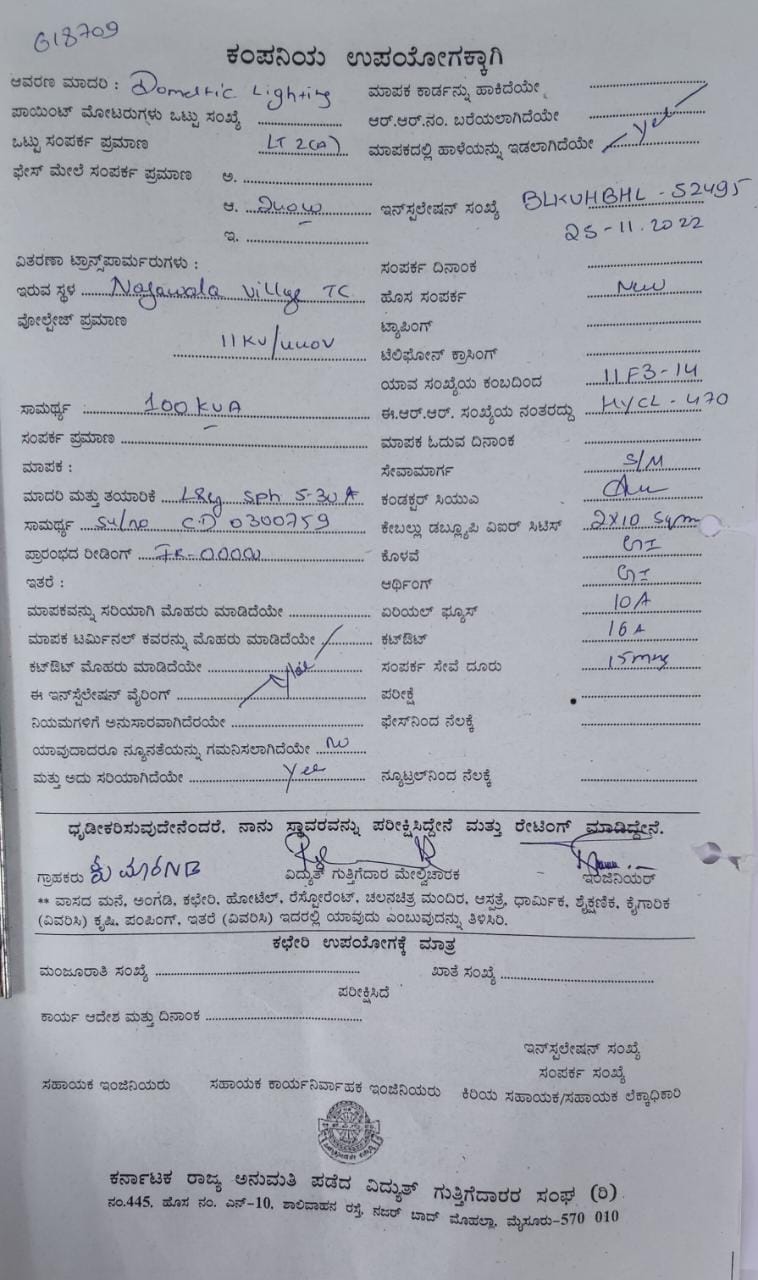 618709
ಕಂಪನಿಯ ಉಪಯೋಗಕ್ಕಾಗಿ
ಆವರಣ ಮಾದರಿ : Domestic Lighting ಮಾಪಕ ಕಾರ್ಡನ್ನು ಹಾಕಿದೆಯೇ
ಪಾಯಿಂಟ್ ಮೋಟರುಗಳು ಒಟ್ಟು ಸಂಖ್ಯೆ ಆರ್.ಆರ್.ನಂ. ಬರೆಯಲಾಗಿದೆಯೇ
ಒಟ್ಟು ಸಂಪರ್ಕ ಪ್ರಮಾಣ LT 2(A) ಮಾಪಕದಲ್ಲಿ ಹಾಳೆಯನ್ನು ಇಡಲಾಗಿದೆಯೇ Yes
ಫೇಸ್ ಮೇಲೆ ಸಂಪರ್ಕ ಪ್ರಮಾಣ ಅ.
ಆ. 240W ಇನ್‌ಸ್ಟಲೇಷನ್ ಸಂಖ್ಯೆ BLKUHBHL - 52495
ಇ. 25-11.2022
ವಿತರಣಾ ಟ್ರಾನ್ಸ್‌ಪಾರ್ಮರುಗಳು : ಸಂಪರ್ಕ ದಿನಾಂಕ
ಇರುವ ಸ್ಥಳ Nagawala Village TC ಹೊಸ ಸಂಪರ್ಕ New
ವೋಲ್ಟೇಜ್ ಪ್ರಮಾಣ 11KV/440V ಟ್ಯಾಪಿಂಗ್
ಟೆಲಿಫೋನ್ ಕ್ರಾಸಿಂಗ್
ಯಾವ ಸಂಖ್ಯೆಯ ಕಂಬದಿಂದ 11F3-14
ಸಾಮರ್ಥ್ಯ 100 KVA ಈ.ಆರ್.ಆರ್. ಸಂಖ್ಯೆಯ ನಂತರದ್ದು HYCL - 470
ಸಂಪರ್ಕ ಪ್ರಮಾಣ ಮಾಪಕ ಓದುವ ದಿನಾಂಕ
ಮಾಪಕ : ಸೇವಾಮಾರ್ಗ S/M
ಮಾದರಿ ಮತ್ತು ತಯಾರಿಕೆ L&G Sph 5-30 A ಕಂಡಕ್ಟರ್ ಸಿಯುಎ
ಸಾಮರ್ಥ್ಯ Sl/no CD 0300759 ಕೇಬಲ್ಲು ಡಬ್ಲ್ಯೂಪಿ ವಿಐರ್ ಸಿಟಿಸ್ 2X10 Sqm
ಪ್ರಾರಂಭದ ರೀಡಿಂಗ್ IR-00000 ಕೊಳವೆ GI
ಇತರೆ : ಆರ್ಥಿಂಗ್ GI
ಮಾಪಕವನ್ನು ಸರಿಯಾಗಿ ಮೊಹರು ಮಾಡಿದೆಯೇ ಏರಿಯಲ್ ಫ್ಯೂಸ್ 10A
ಮಾಪಕ ಟರ್ಮಿನಲ್ ಕವರನ್ನು ಮೊಹರು ಮಾಡಿದೆಯೇ ಕಟ್‌ಔಟ್ 16A
ಕಟ್‌ಔಟ್ ಮೊಹರು ಮಾಡಿದೆಯೇ ಸಂಪರ್ಕ ಸೇವೆ ದೂರು 15mtrs
ಈ ಇನ್‌ಸ್ಟೆಲೇಷನ್ ವೈರಿಂಗ್ ಪರೀಕ್ಷೆ
ನಿಯಮಗಳಿಗೆ ಅನುಸಾರವಾಗಿದೆರೆಯೇ ಫೇಸ್‌ನಿಂದ ನೆಲಕ್ಕೆ
ಯಾವುದಾದರೂ ನ್ಯೂನತೆಯನ್ನು ಗಮನಿಸಲಾಗಿದೆಯೇ No
ಮತ್ತು ಅದು ಸರಿಯಾಗಿದೆಯೇ Yes ನ್ಯೂಟ್ರಲ್‌ನಿಂದ ನೆಲಕ್ಕೆ
ಧೃಡೀಕರಿಸುವುದೇನೆಂದರೆ, ನಾನು ಸ್ಥಾವರವನ್ನು ಪರೀಕ್ಷಿಸಿದ್ದೇನೆ ಮತ್ತು ರೇಟಿಂಗ್ ಮಾಡಿದ್ದೇನೆ.
ಗ್ರಾಹಕರು ವಿದ್ಯುತ್ ಗುತ್ತಿಗೆದಾರ ಮೇಲ್ವಿಚಾರಕ ಇಂಜಿನಿಯರ್
** ವಾಸದ ಮನೆ, ಅಂಗಡಿ, ಕಛೇರಿ, ಹೋಟೆಲ್, ರೆಸ್ಟೋರೆಂಟ್, ಚಲನಚಿತ್ರ ಮಂದಿರ, ಆಸ್ಪತ್ರೆ, ಧಾರ್ಮಿಕ, ಶೈಕ್ಷಣಿಕ, ಕೈಗಾರಿಕ
(ವಿವರಿಸಿ) ಕೃಷಿ, ಪಂಪಿಂಗ್, ಇತರೆ (ವಿವರಿಸಿ) ಇದರಲ್ಲಿ ಯಾವುದು ಎಂಬುವುದನ್ನು ತಿಳಿಸಿರಿ.
ಕಛೇರಿ ಉಪಯೋಗಕ್ಕೆ ಮಾತ್ರ
ಮಂಜೂರಾತಿ ಸಂಖ್ಯೆ ಖಾತೆ ಸಂಖ್ಯೆ
ಪರೀಕ್ಷಿಸಿದೆ
ಕಾರ್ಯ ಆದೇಶ ಮತ್ತು ದಿನಾಂಕ
ಇನ್‌ಸ್ಟಲೇಷನ್ ಸಂಖ್ಯೆ
ಸಂಪರ್ಕ ಸಂಖ್ಯೆ
ಸಹಾಯಕ ಇಂಜಿನಿಯರು ಸಹಾಯಕ ಕಾರ್ಯನಿರ್ವಾಹಕ ಇಂಜಿನಿಯರು ಕಿರಿಯ ಸಹಾಯಕ/ಸಹಾಯಕ ಲೆಕ್ಕಾಧಿಕಾರಿ
ಕರ್ನಾಟಕ ರಾಜ್ಯ ಅನುಮತಿ ಪಡೆದ ವಿದ್ಯುತ್ ಗುತ್ತಿಗೆದಾರರ ಸಂಘ (ರಿ)
ನಂ.445, ಹೊಸ ನಂ. ಎನ್-10, ಶಾಲಿವಾಹನ ರಸ್ತೆ, ನಜರ್ ಬಾದ್ ಮೊಹಲ್ಲಾ, ಮೈಸೂರು-570 010